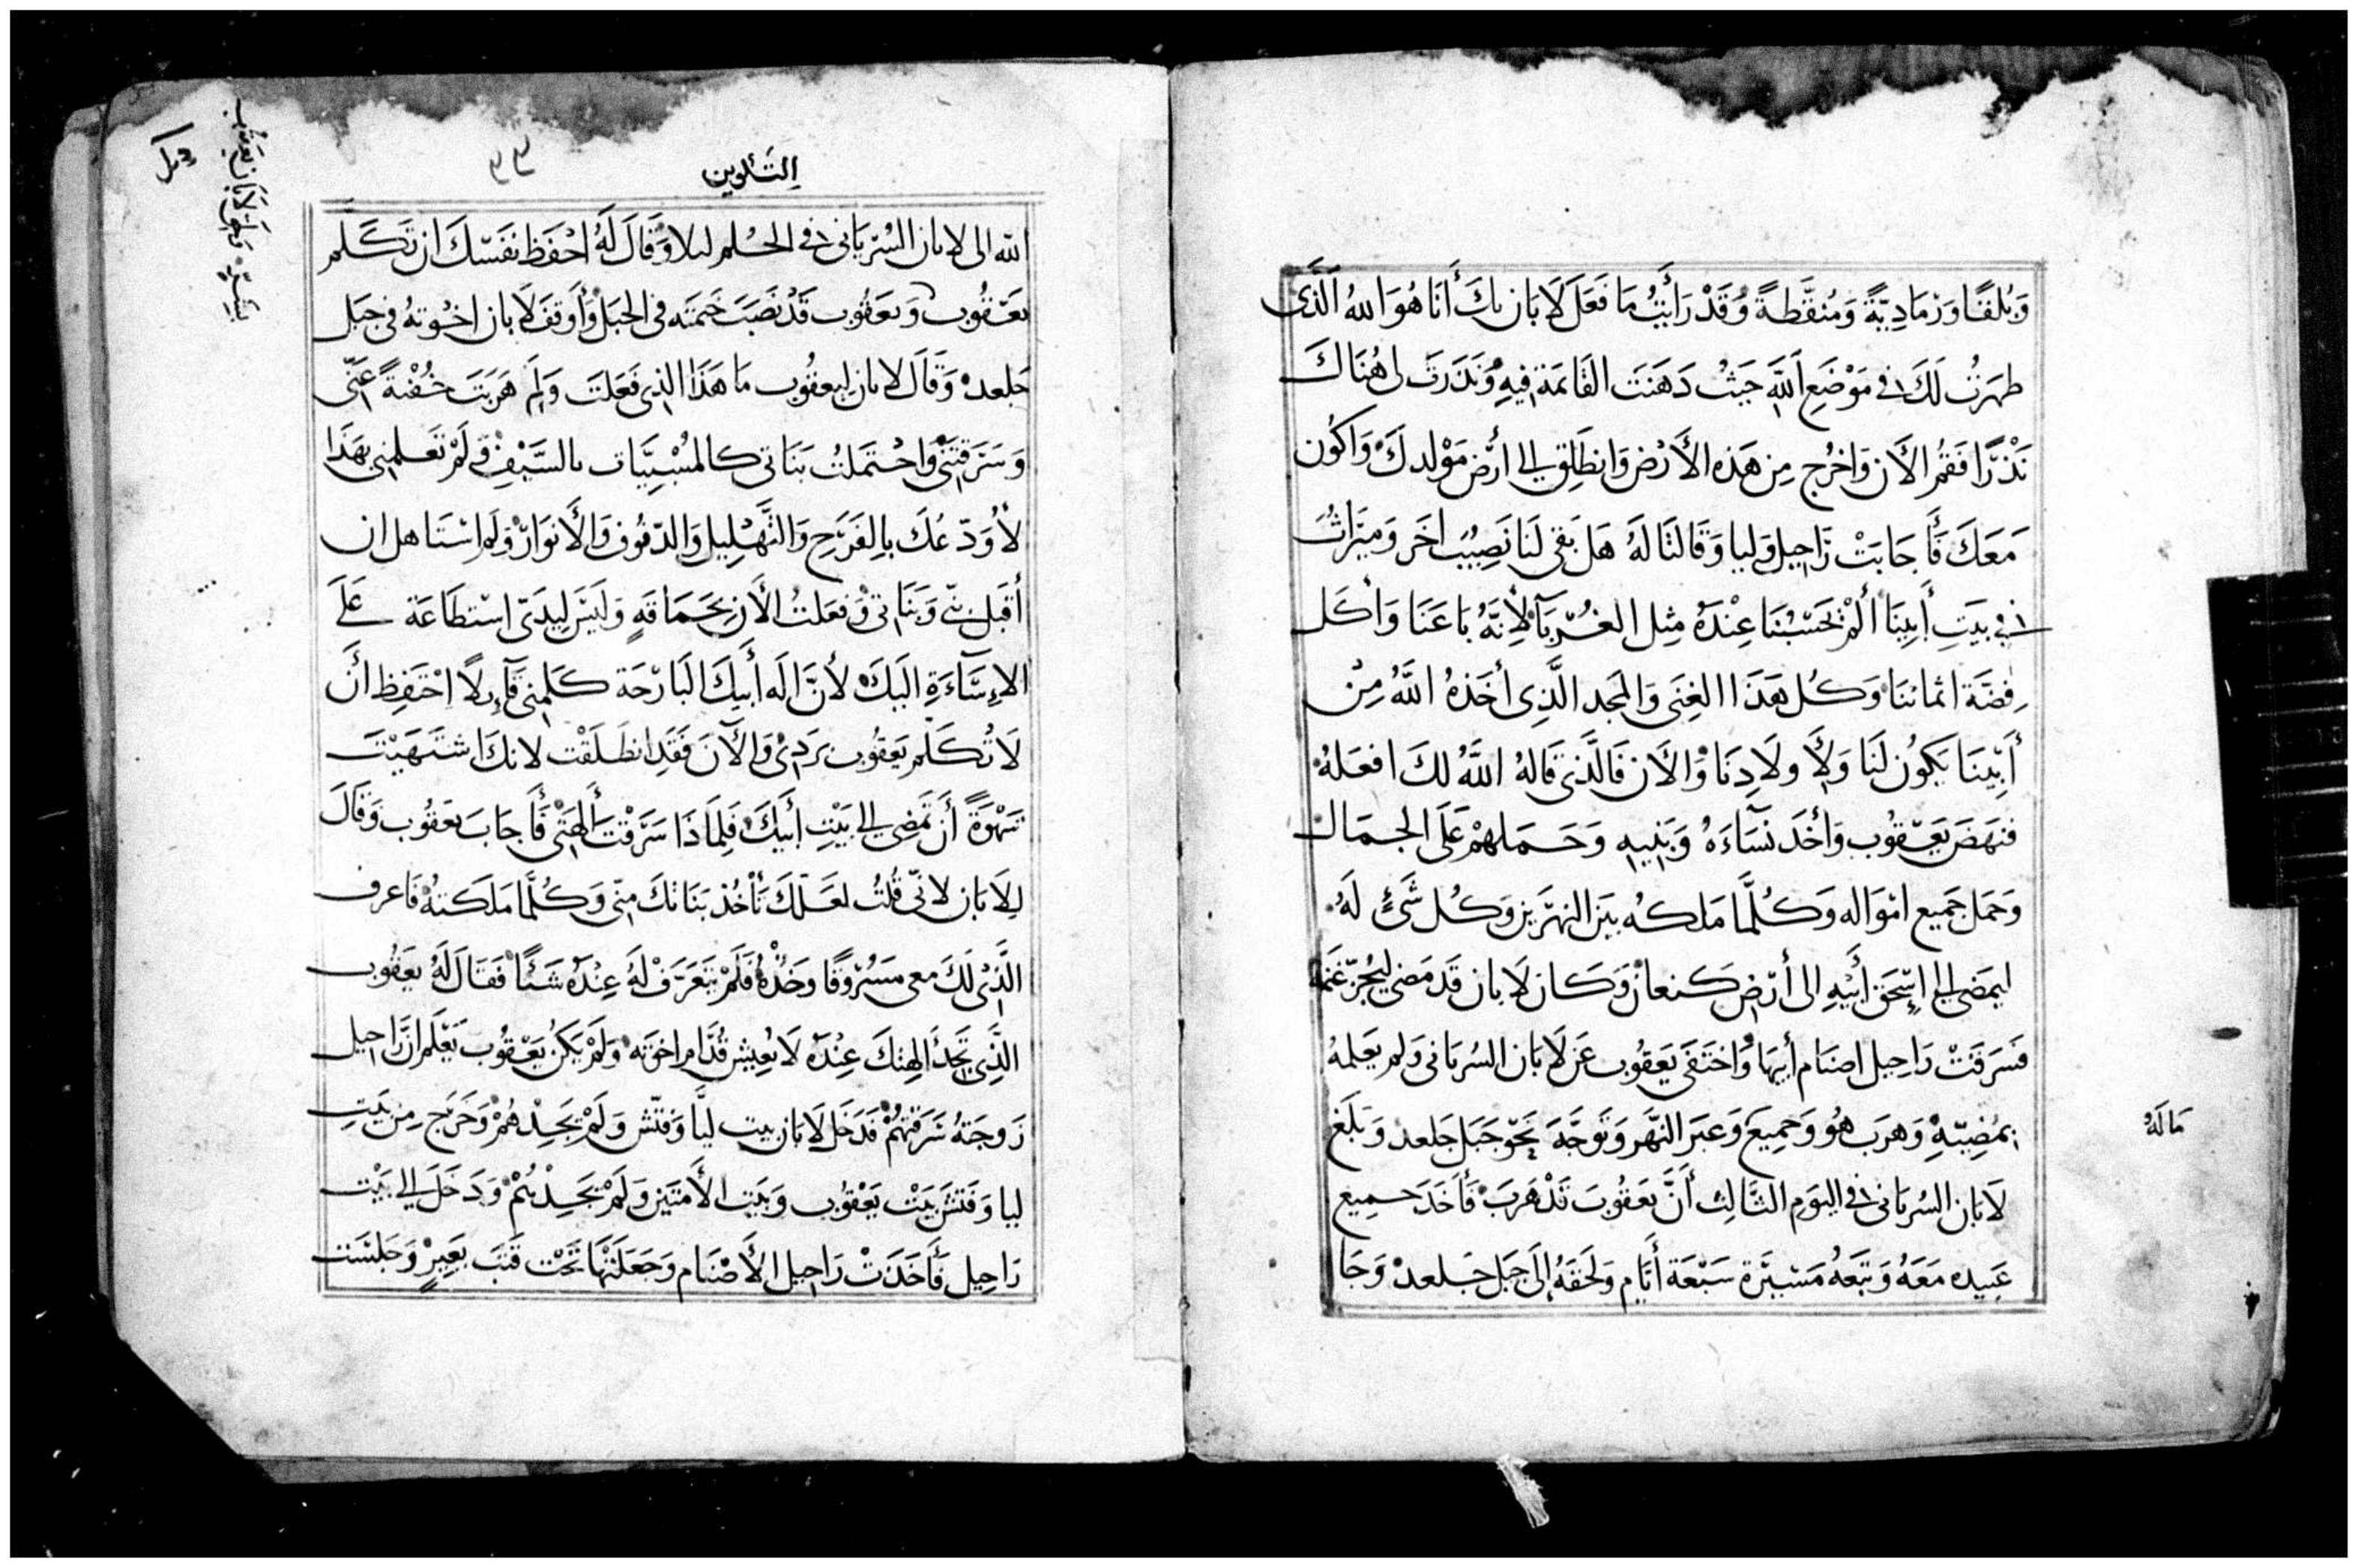 وَبُلقًا وَرْمَادِيَّةً وَمُنقَّطةً وَقَدْ رَأَيتُ مَا فَعَلَ لَابَان بكَ أَنَا هُوَ اللهُ الَّذى
ظهَرتُ لَكَ فى مَوْضَعِ اَللَّهِ حَيثُ دَهَنتَ القَائمَة فِيهِ وَنَذَرتَ لى هُنَاكَ
نَذْرًا فَقُمِ الأَن وَاخرُج مِن هَذه الأَرْض وَانطَلِق إلى أَرْض مَوْلدكَ وَاكُون
مَعَكَ فَأَجَابَتْ رَاحِيل وَليا وَقَالتَا لَهُ هَل بَقى لَنَا نَصِيْب اخَر وَمِيرَاثُ
فى بيَتِ أَبِينَا أَلَمْ تَحسْبُنَا عِنْدَهُ مِثل الغُرّبَآ لأِنَّهُ بَاعَنَا وَأَكَل
فِضَّة اثماننَا وَكُل هَذَا الغِنَى وَالمجد الَّذِى أخَذهُ اللَّهُ مِنْ
أَبِيْنَا يَكوُن لَنَا وَلأَولَادِنَا وَالأَن فَالَّذى قَالهُ اللَّهُ لكَ افعَلهُ
فنهَضَ يَعقوُب وَأخَذ نسَآءَهُ وَبَنِيهِ وَحَمَلهمْ عَلَى الجمَال
وَحَمل جَميع امْوَاله وَكُلَّمَا مَلكهُ بيَن النهرَين وَكُل شَئٍ لَهُ
ليمَضى إلى إِسْحَق أَبيْهِ الى أَرْض كنعَان وَكَان لَابان قَد مَضى ليُجزّ غَنمَهُ
فسَرقَتْ رَاحِيل اصنَام أَبيهَا وَاختَفَى يَعَقُوب عَن لَابَان السُريَانى وَلم يَعَلمهُ
بمُضِيّهِ وَهرَب هُو وَجمِيعَ وَعبَر النهَّر وَتَوجَّهَ نَحَو جَبَل جَلعد وَبَلَغ
مَا لَهُ
لَابَان السُريَانى فى اليوَم الثَالِث أَنَّ يَعقُوبَ قَدْ هَرَبَ فَأَخَذَ جميع
عَبيده مَعَهُ وَتبعَهُ مَسْيرَة سَبْعَة أَيَّام وَلحَقهُ إلَى جَبَل جَلعد وَجَا
التكوين
٣٣
الله الى لابان السُريَانى فى الحُلم ليلا وَقَالَ لَهُ احْفَظ نفَسْكَ ان تكَلم
يعَقُوب وَيَعقُوب قَدْ نَصَبَ خَيمَته فى الجَبَل وَأَوقَفَ لَابان اخوُتهُ فى جبَل
جَلعد وَقَالَ لابان ليعقُوب مَا هَذَا الذى فعَلتَ وَلِمَ هَرَبتَ خُفْيَةً عَنّى
وَسَرَقتَنى وَاحْتمَلتُ بَنَاتى كالمُسْبيَّات بالسَّيْفِ لَمْ تَعلمنى بهَذَا
لأُوَدّعكَ بالفَرَحِ وَالتَهْلِيل وَالدّفوُف وَالأَنوَار وَلَم اسْتاهل ان
أُقبل بنىّ وَبَنَاتى وَفعَلتُ الأَن بحَمَاقَهٍ وَليَسَ ليدَىّ اسْتطَاعَة عَلَى
الإِسَآءَةِ اليَكَ لأنَّ الَه أَبيكَ البَارْحَة كَلمنى قَآءِلاً احْتَفِظ أَنْ
لَا تُكَلم يَعقُوب بَردِى وَالأَنَ فَقَدِ انطَلَقْت لانكَ اشتَهَيْتَ
شهْوَةً أَن تمَضى إلى بَيْتِ أَبيكَ فَلِمَاذَا سَرَقْت أَلهتى فَأَجَابَ يَعقُوب وَقَالَ
لِلَابَان لانّى قُلتُ لعَلكَ تَأْخُذ بَنَاتكَ مِنّى وَكُلَّمَا مَلَكتهُ فَاعرف
الَّذِى لَكَ معى مَسْروُقًا وَخذْهُ فلَمْ يَتعَرَّفْ لَهُ عِنْدَهُ شَئًا فقَالَ لَهُ يعَقُوب
الَّذِى تَجِدُ الهتكَ عِنْدَهُ لَا يُعِيش قُدَّام اخوَته وَلَمْ يَكن يَعقُوب يَعْلَم ان رَاحِيل
زَوجتهُ سَرَقتهُمْ فدَخَل لَابَان بيت ليَّا وَفتّش وَلَمْ يَجِدْهُمْ وَخَرَج مِن بَيتِ
ليا وَفَتشَ بَيْت يَعْقوُب وَبَيت الأَمتَين وَلَمْ يَجِدْهُمْ وَدَخَلَ إلى بَيْت
رَاحِيل فَأَخَذَتْ رَاحِيل الأَصْنَام وَجَعَلَتهَا تَحْت قَتب بَعِيرٍ وَجَلسَت